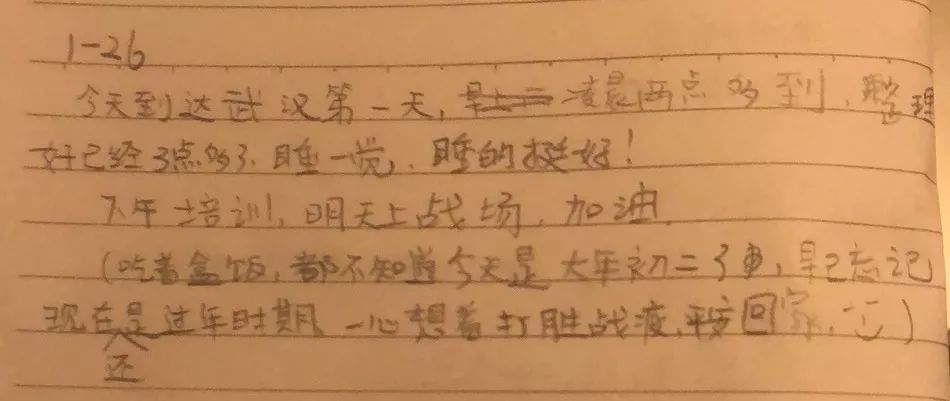 1-26
今天到达武汉第一天,凌晨两点多到,整理
好已经3点多了.睡一觉,睡的挺好!
下午培训,明天上战场,加油
(吃着盒饭,都不知道今天是大年初二了,早已忘记
现在还是过年时期.一心想着打胜战疫,平安回家.)